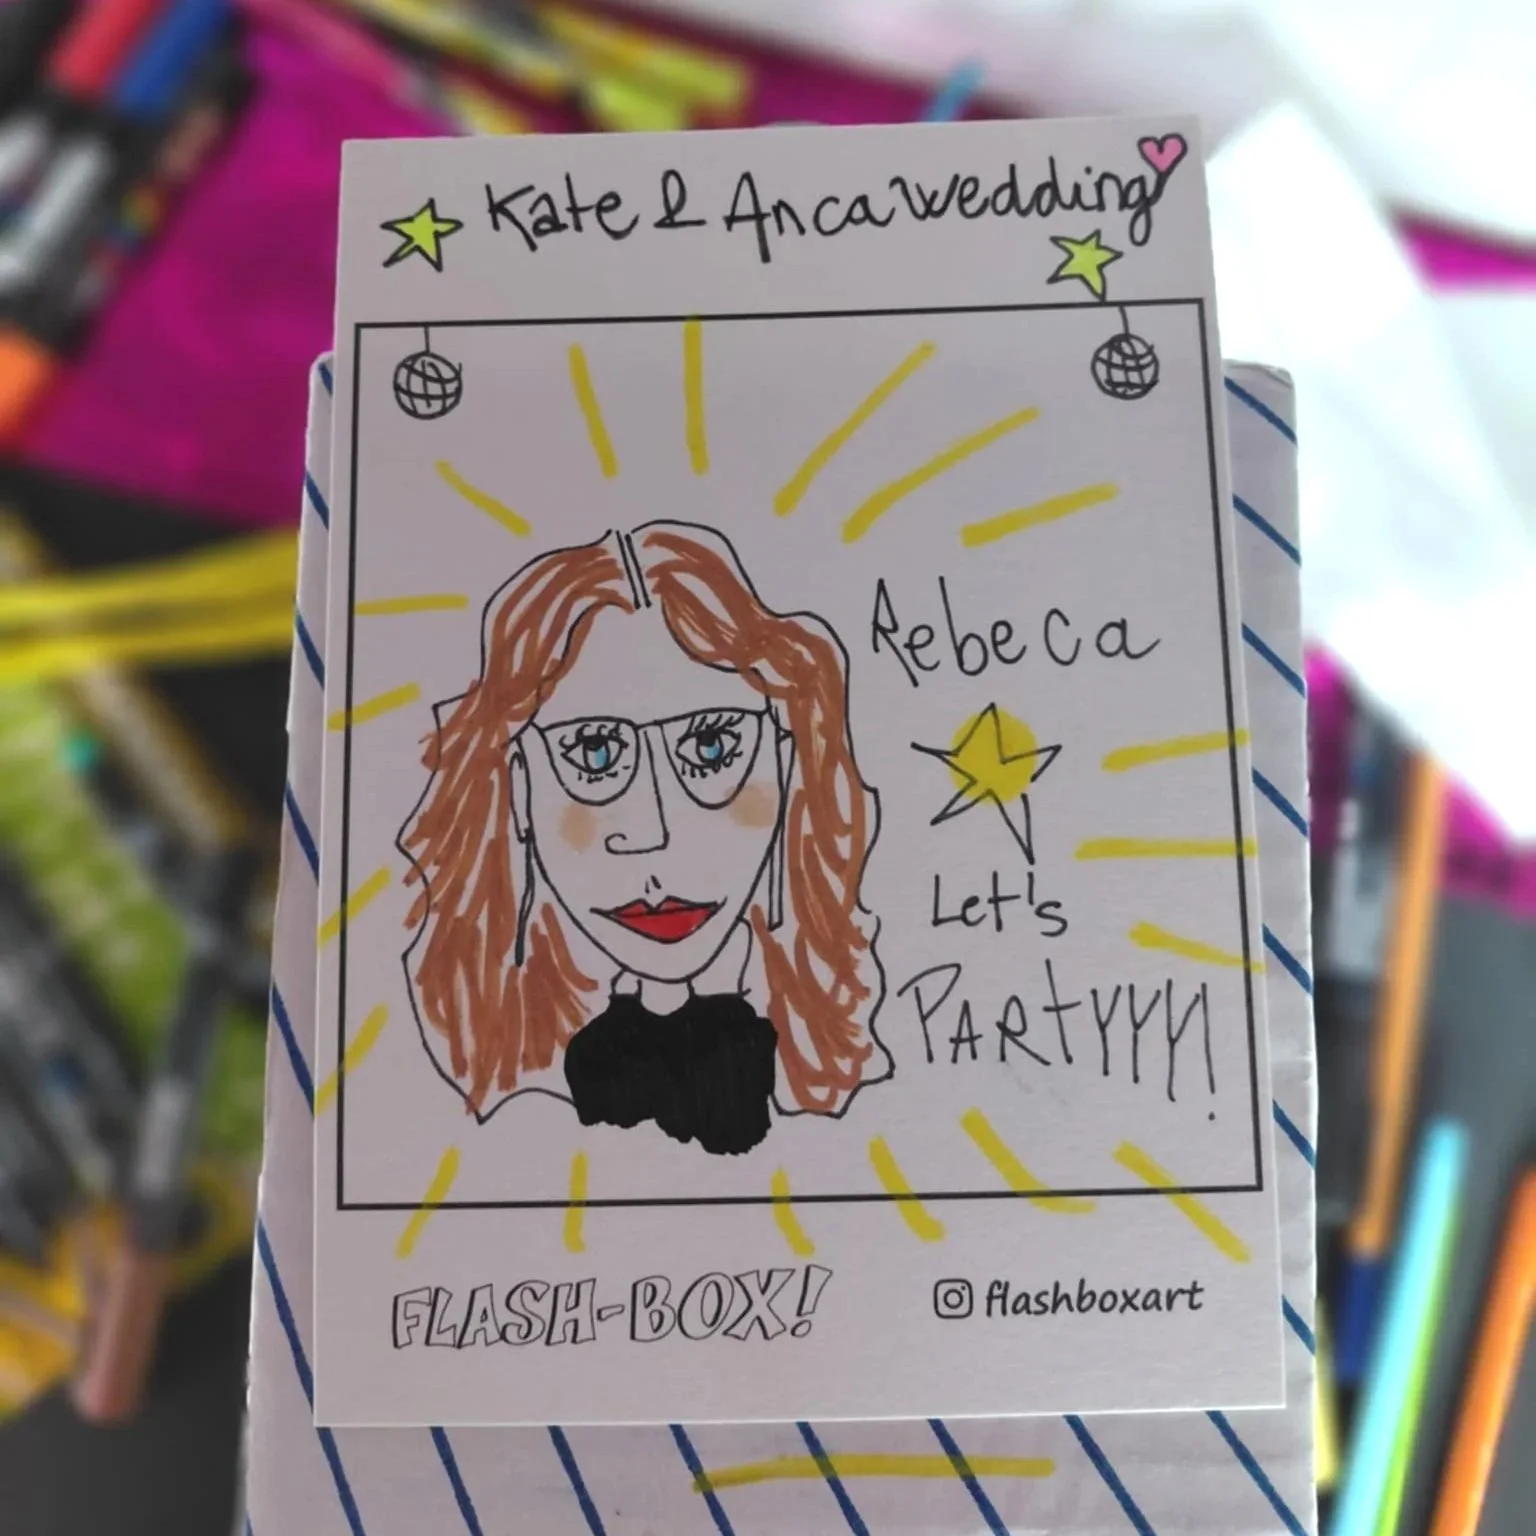 Kate & Anca wedding
Rebeca
Let's
PARTYYY!
FLASH-BOX!
flashboxart